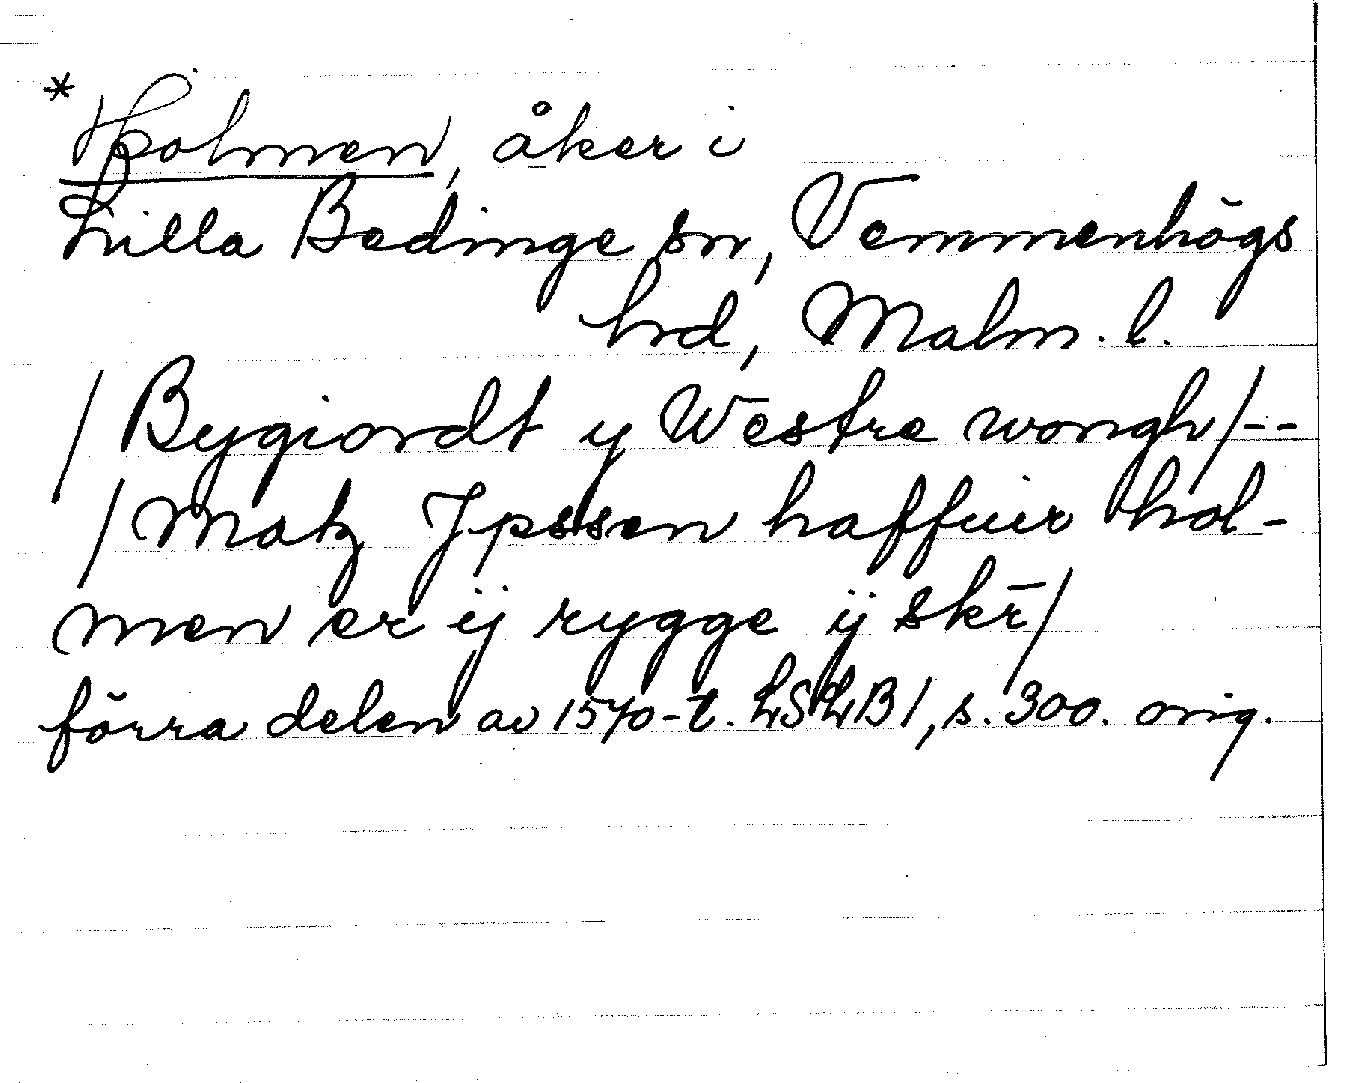 * Holmen, åker i
Lilla Bedinge sn, Vemmenhögs
hrd, Malm. l.
/Bygiordt y Westre wongh/--
/Matz Jpssen haffuer hol-
men er ij rygge ij skr̄/
förra delen av 1570-t. LSLB1, s. 300. orig.